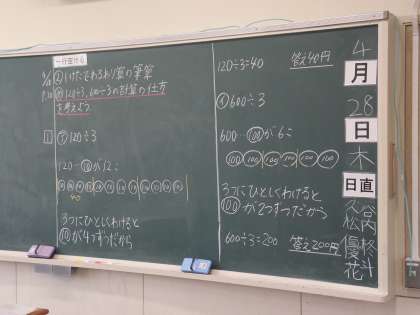 一行空ける
4/28
㋱ 1けたでわるわり算の筆算
P.70
㋱ 120÷3、600÷3の計算の仕方
を考えよう。
1
㋐ 120÷3
120…⑩が12こ
⑩⑩⑩⑩⑩⑩⑩⑩⑩⑩⑩⑩
40
3つにひとしくわけると
⑩が4つずつだから
120÷3=40 答え40円
㋑ 600÷3
600…(100)が6こ
(100)(100)(100)(100)(100)(100)
3つにひとしくわけると
(100)が2つずつだから
600÷3=200 答え200円
4
月
28
日
木
日直